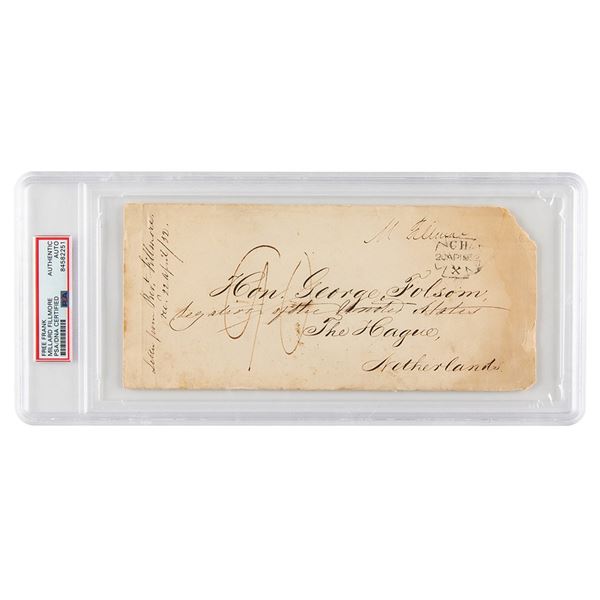 FREE FRANK
MILLARD FILLMORE
PSA/DNA CERTIFIED
AUTHENTIC
AUTO
84582251
PSA
Letter from Prest. Fillmore.
22 April /52.
M Fillmore
Hon. George Folsom,
Legation of the United States
The Hague,
Netherlands